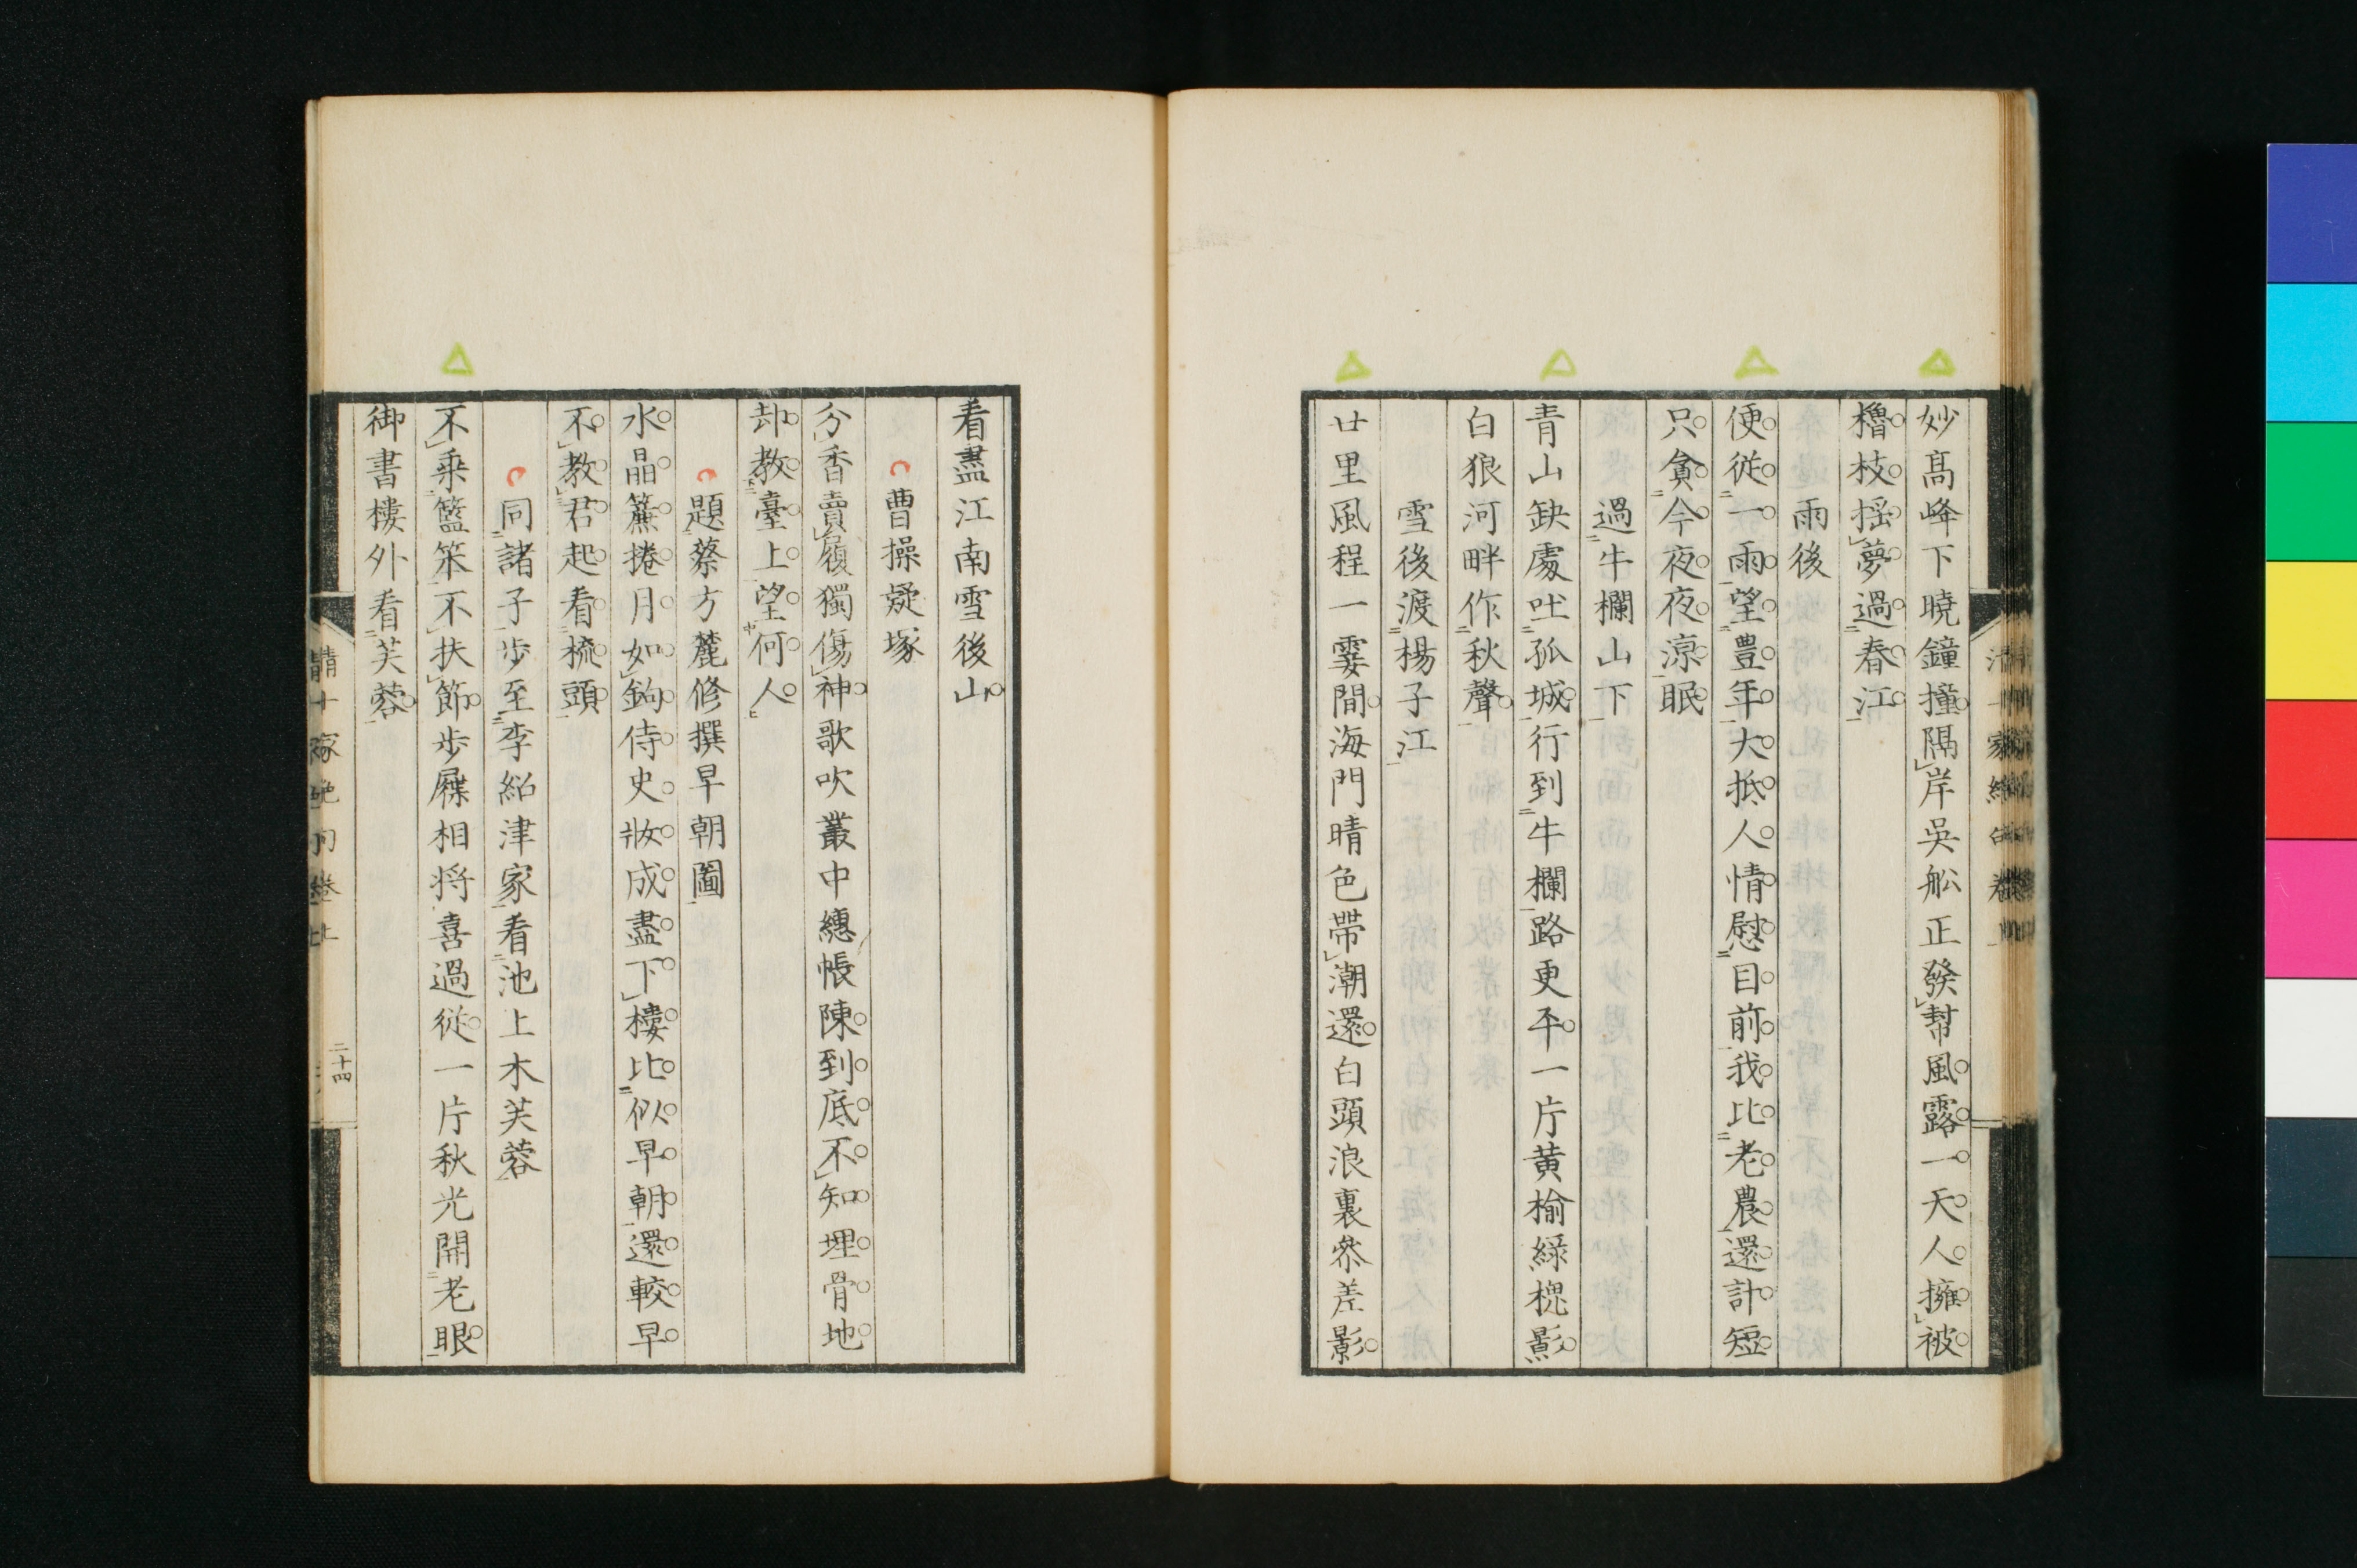 妙高峰下曉鐘撞隔岸吳舩正發幇風露一天人擁被
櫓枝揺夢過春江
雨後
便從一雨望豊年大抵人情慰目前我比老農還計短
只貪今夜夜涼眠
過牛欄山下
青山缺處吐孤城行到牛欄路更平一片黄榆緑槐影
白狼河畔作秋聲
雪後渡楊子江
廿里風程一霎間海門晴色帶潮還白頭浪裏叅差影
看盡江南雪後山
曹操疑塚
分香賣履獨傷神歌吹叢中繐帳陳到底不知埋骨地
却教臺上望何人
題蔡方麓修撰早朝圖
水晶簾捲月如鉤侍史妝成盡下樓比似早朝還較早
不教君起看梳頭
同諸子步至李紹津家看池上木芙蓉
不乗籃笨不扶節步屧相将喜過從一片秋光開老眼
御書樓外看芙蓉
二十四